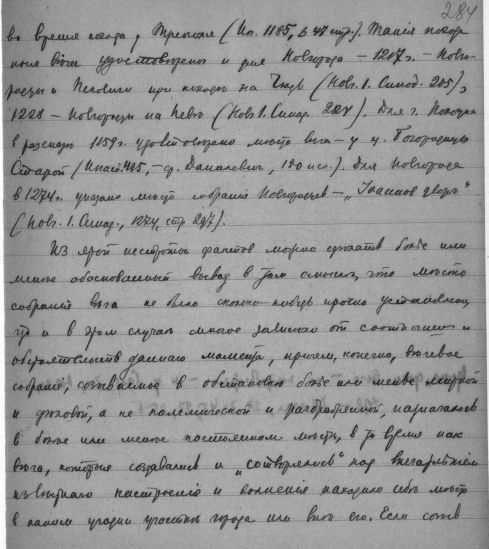 284
во время похода, Треполя (Ип. 1185, 647 стр.). Такія походн
ныя вѣча удостовѣрены и для Новгорода – 1217 г. – Новго-
родцы и Псковичи при походѣ на Чудь (Новг. I. Синод. 205),
1228 – Новгородцы на Неву (Новг. I. Синод. 227). Для г. Полоцка
в разсказѣ 1159 г. удостовѣрено мѣсто вѣча – у ц. Богородицы
Старой (Ипат. 495, – ср. Данилевич, 180 исл.). Для Новгорода
в 1274 г. указано мѣсто собранія Новгородцев – „Іоаннов двор"
(Новг. I. Синод., 1274, стр. 297).
Из этой пестроты фактов можно сдѣлать болѣе или
менѣе обоснованный вывод в том смыслѣ, что мѣсто
собранія вѣча не было сколько нибудь прочно установлено,
что и в этом случаѣ многое зависѣло от
обстоятельств даннаго момента, причем, конечно, вѣчевое
собраніе, созываемое в обстановкѣ болѣе или менѣе мирной
и дѣловой, а не полемической и
в болѣе или менѣе постоянном мѣстѣ, в то время как
вѣча, которыя создавались и „сотворялись" под впечатлѣніем
настроенія и волненія находило себѣ мѣсто
в каком угодно участкѣ города или внѣ его. Если созыв